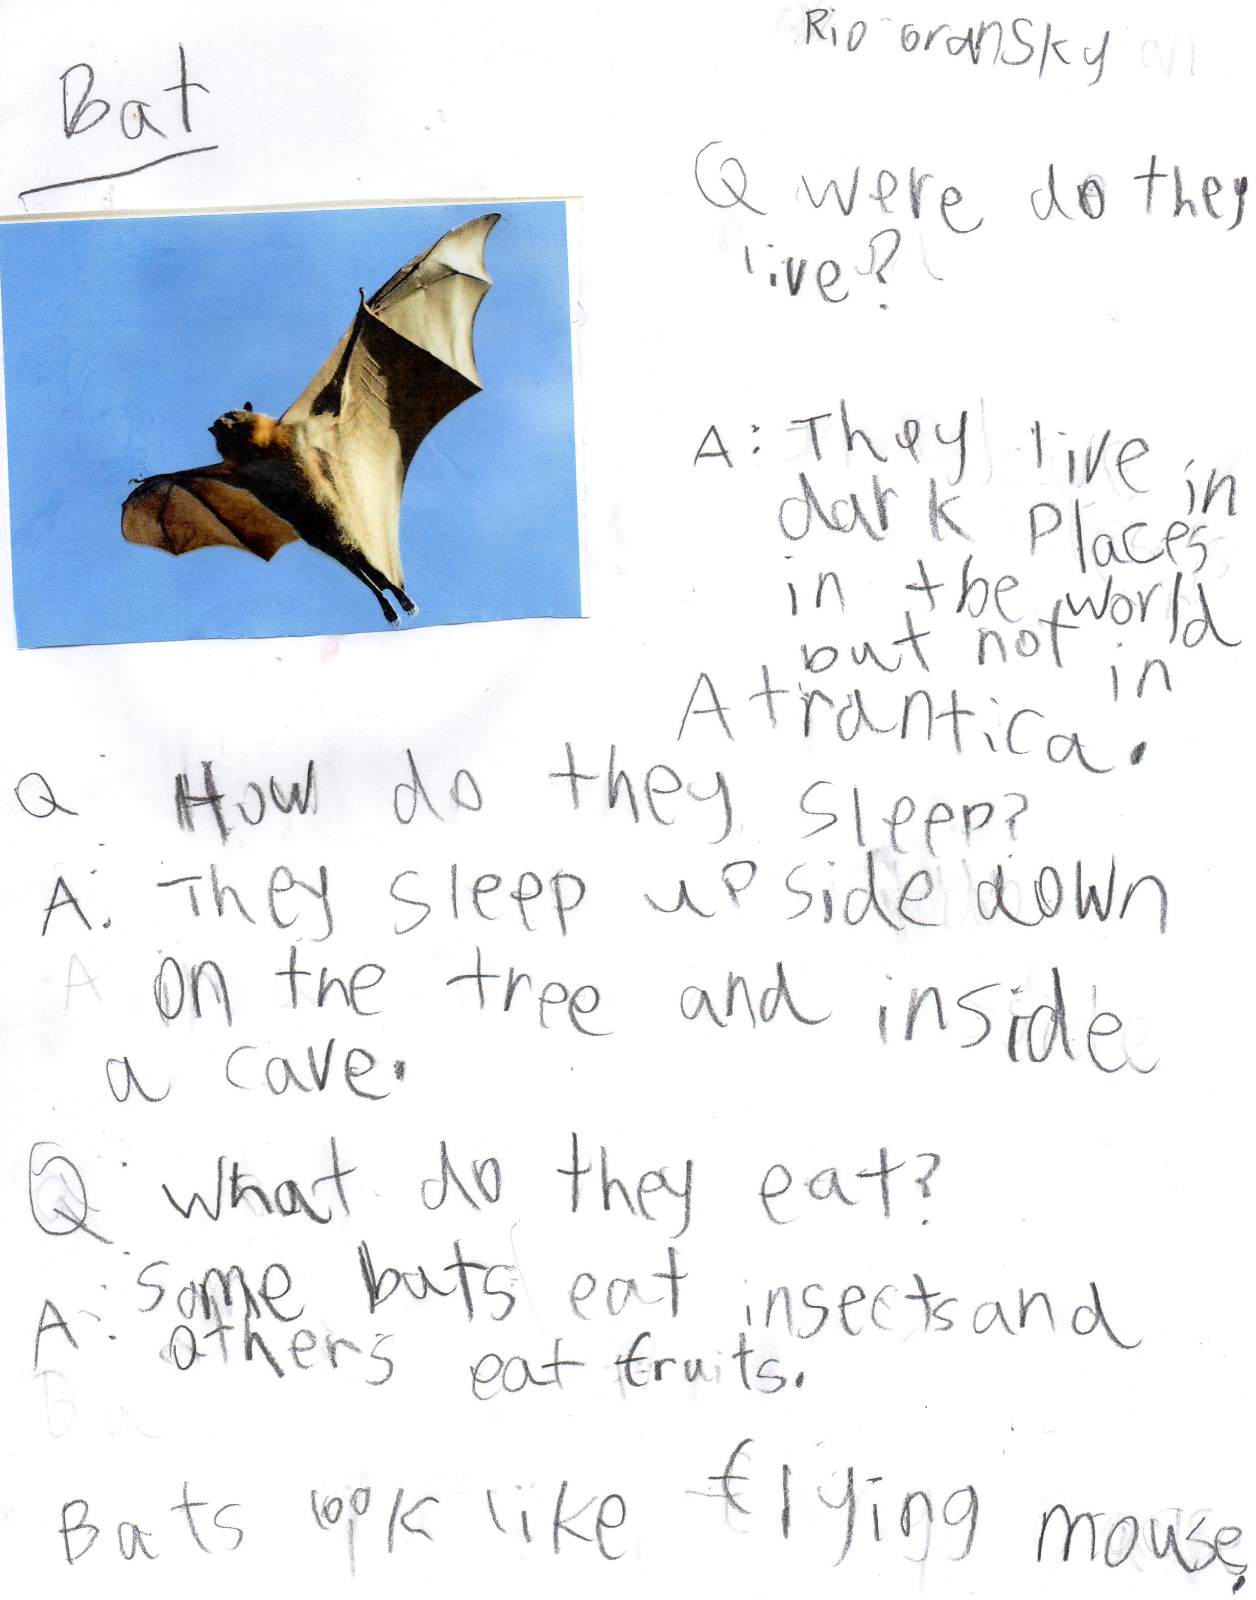 Rio oransky
Bat
Q were do they
live?
A: They live in
dark Places
in the world
but not in
Atrantica.
Q How do they sleep?
A: They sleep upside down
on the tree and inside
a cave.
Q: what do they eat?
A: some bats eat insects and
others eat fruits.
Bats look like flying mouse.